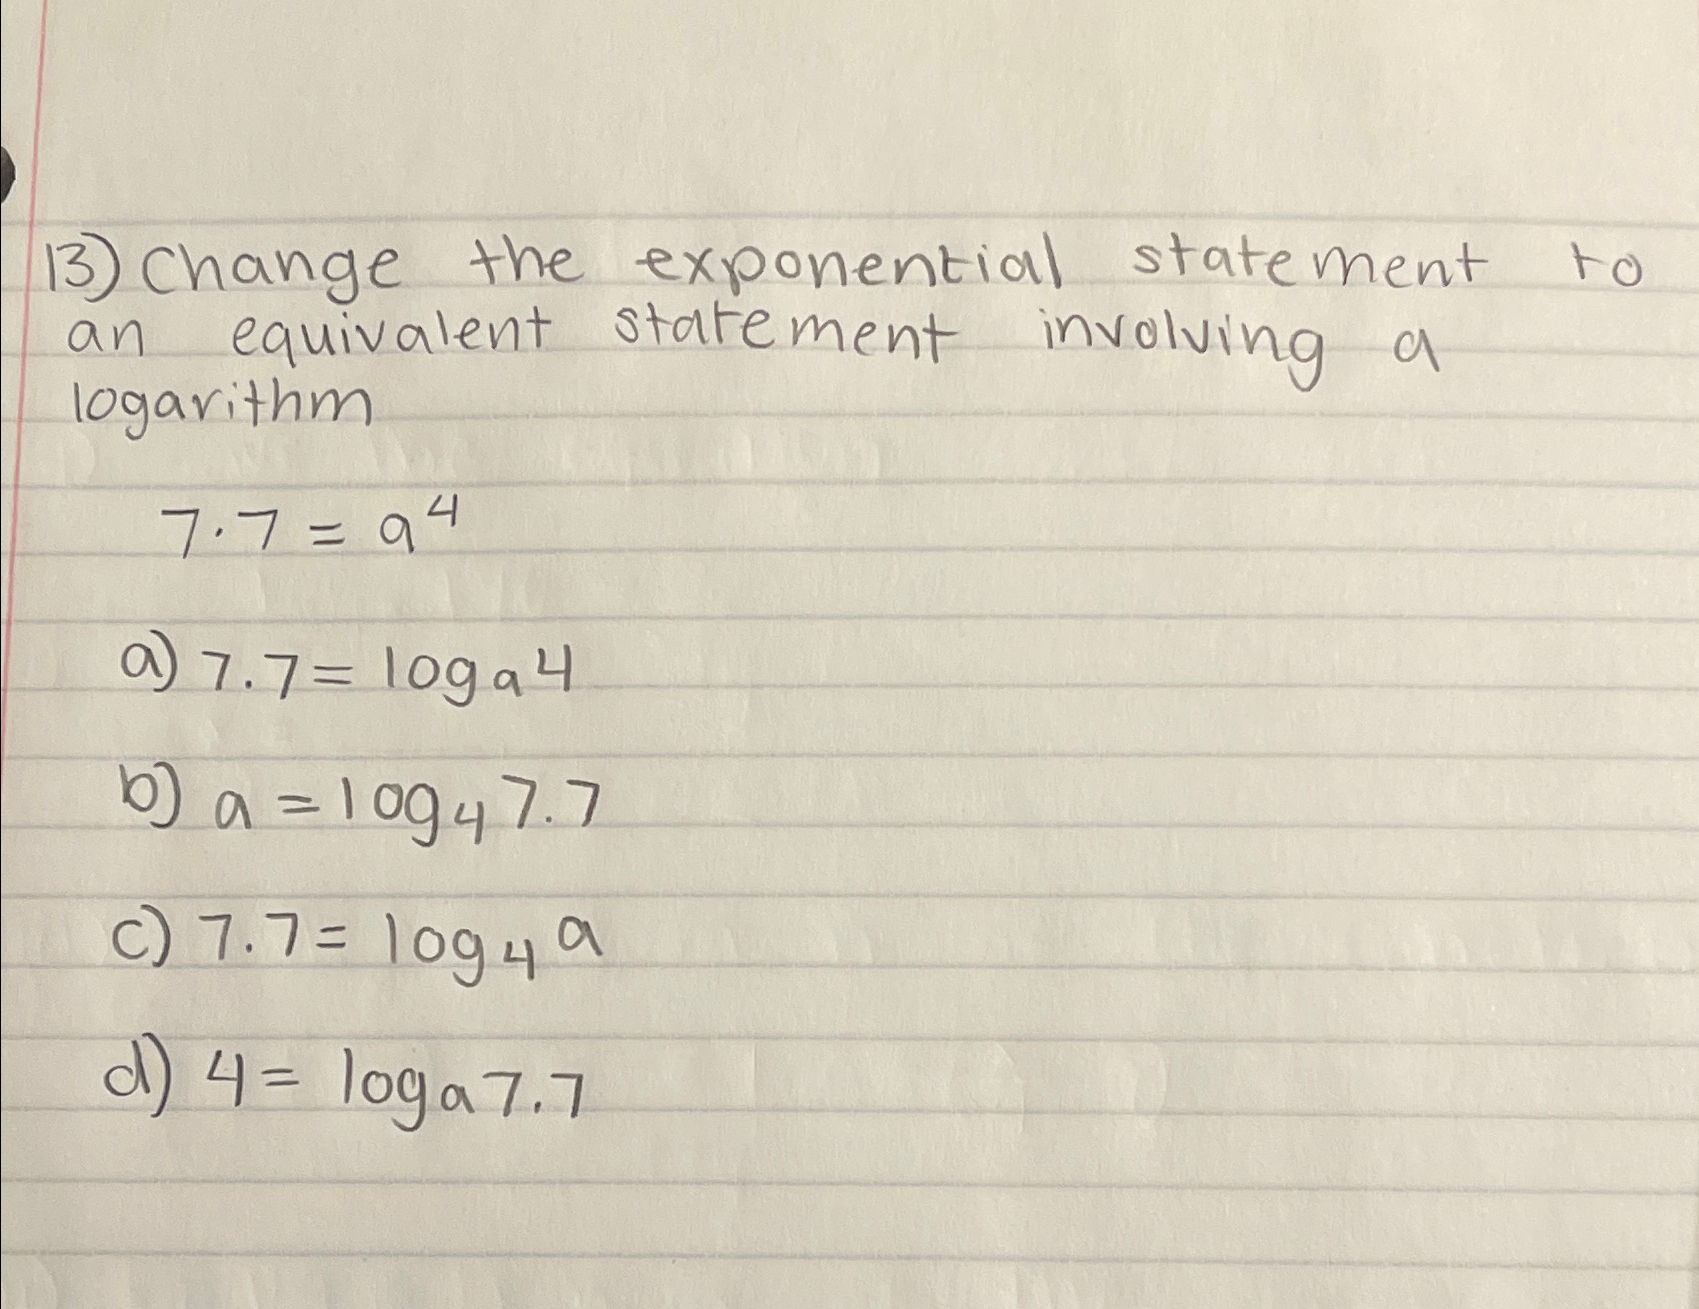 13) Change the exponential statement to
an equivalent statement involving a
logarithm
7·7 = a⁴
a) 7.7 = logₐ4
b) a = log₄7.7
c) 7.7 = log₄a
d) 4 = logₐ7.7